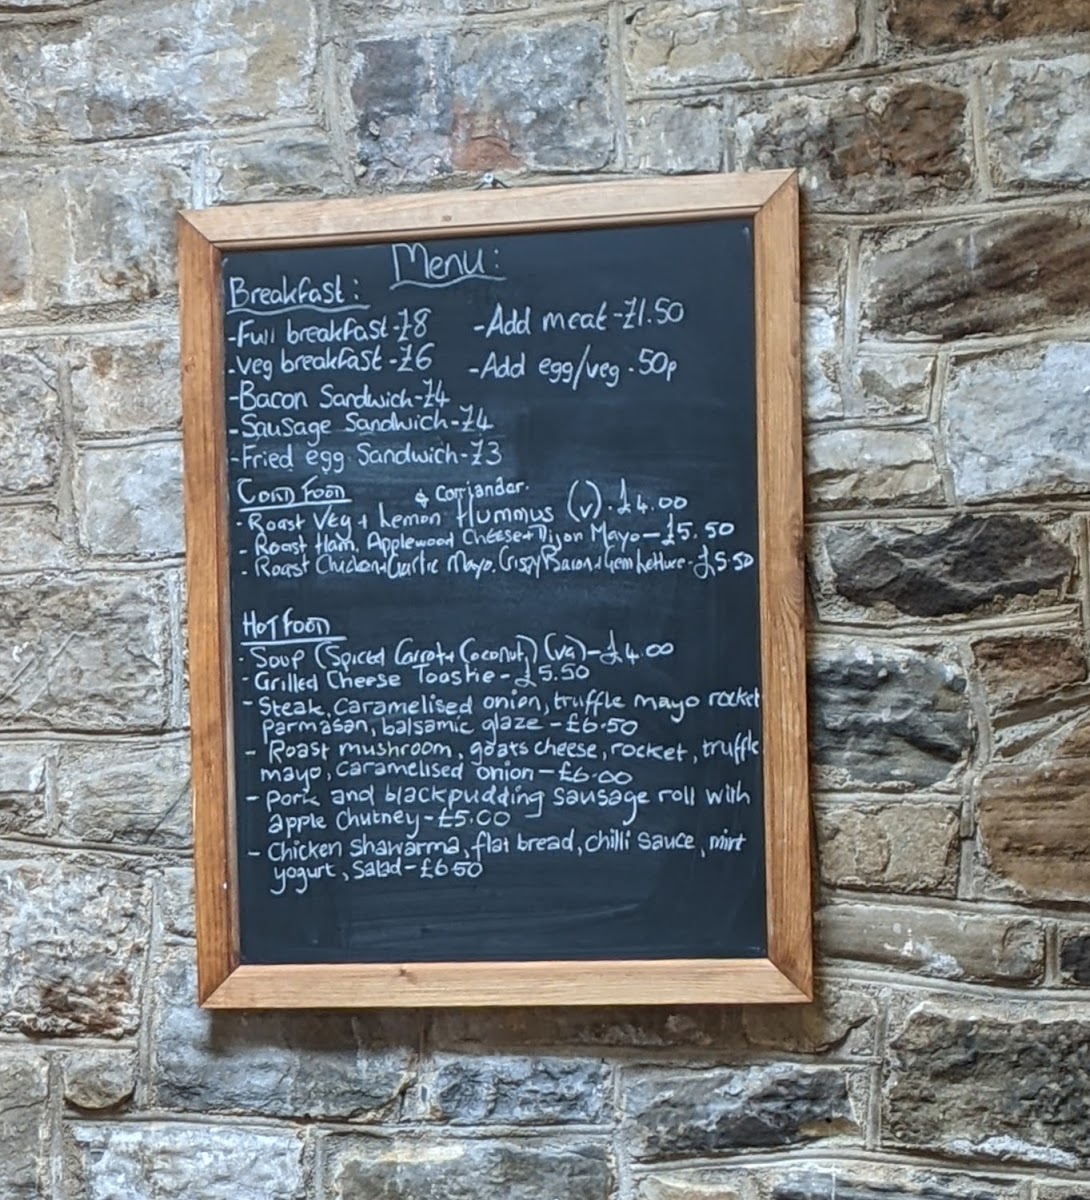 Menu:
Breakfast:
-Full breakfast-£8
-Add meat-£1.50
-Veg breakfast-£6
-Add egg/veg-50p
-Bacon Sandwich-£4
-Sausage Sandwich-£4
-Fried egg Sandwich-£3
Cold Food
& Corriander.
- Roast Veg + Lemon Hummus (v)-£4.00
- Roast Ham, Applewood Cheese + Dijon Mayo-£5.50
- Roast Chicken + Garlic Mayo, Crispy Bacon + Gem Lettuce-£5.50
Hot Food
- Soup (Spiced Carrot + Coconut) (va)-£4.00
- Grilled Cheese Toastie-£5.50
- Steak, caramelised onion, truffle mayo rocket
Parmasan, balsamic glaze-£6.50
- Roast mushroom, goats cheese, rocket, truffle
mayo, caramelised onion-£6.00
- Pork and black pudding sausage roll with
apple chutney-£5.00
- Chicken shawarma, flat bread, chilli sauce, mint
yogurt, salad-£6.50